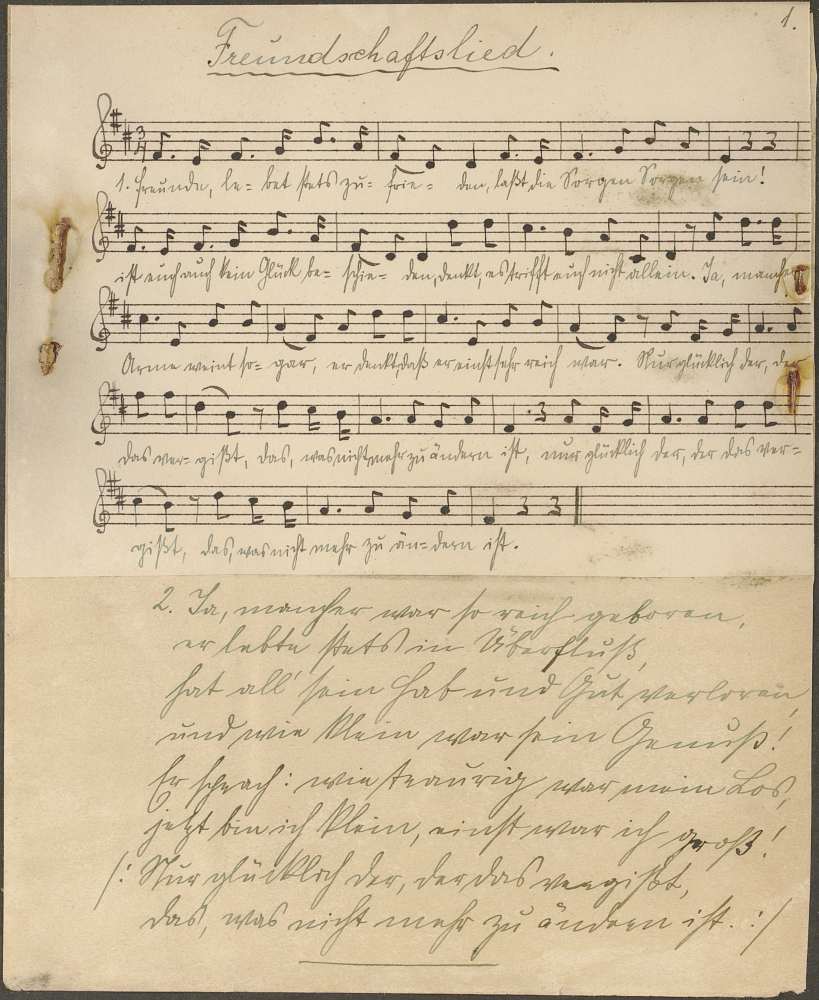 1.
Freundschaftslied.
1. Freunde, le= bet stets zu= frie= den, laßt die Sorgen Sorgen sein!
ist euch auch kein Glück be= schie= den, denkt, es trifft euch nicht allein. Ja, mancher
Arme weint so= gar, er denkt, daß er einst sehr reich war. Nur glücklich der, der
das ver= gißt, das, was nicht mehr zu ändern ist, nur glücklich der, der das ver=
gißt, das, was nicht mehr zu än= dern ist.
2. Ja, mancher war so reich geboren,
er lebte stets in Überfluß,
hat all' sein Hab und Gut verloren,
und wie klein war sein Genuß!
Er sprach: wie traurig war mein Los,
jetzt bin ich klein, einst war ich groß!
/: Nur glücklich der, der das vergißt,
das, was nicht mehr zu ändern ist. :/